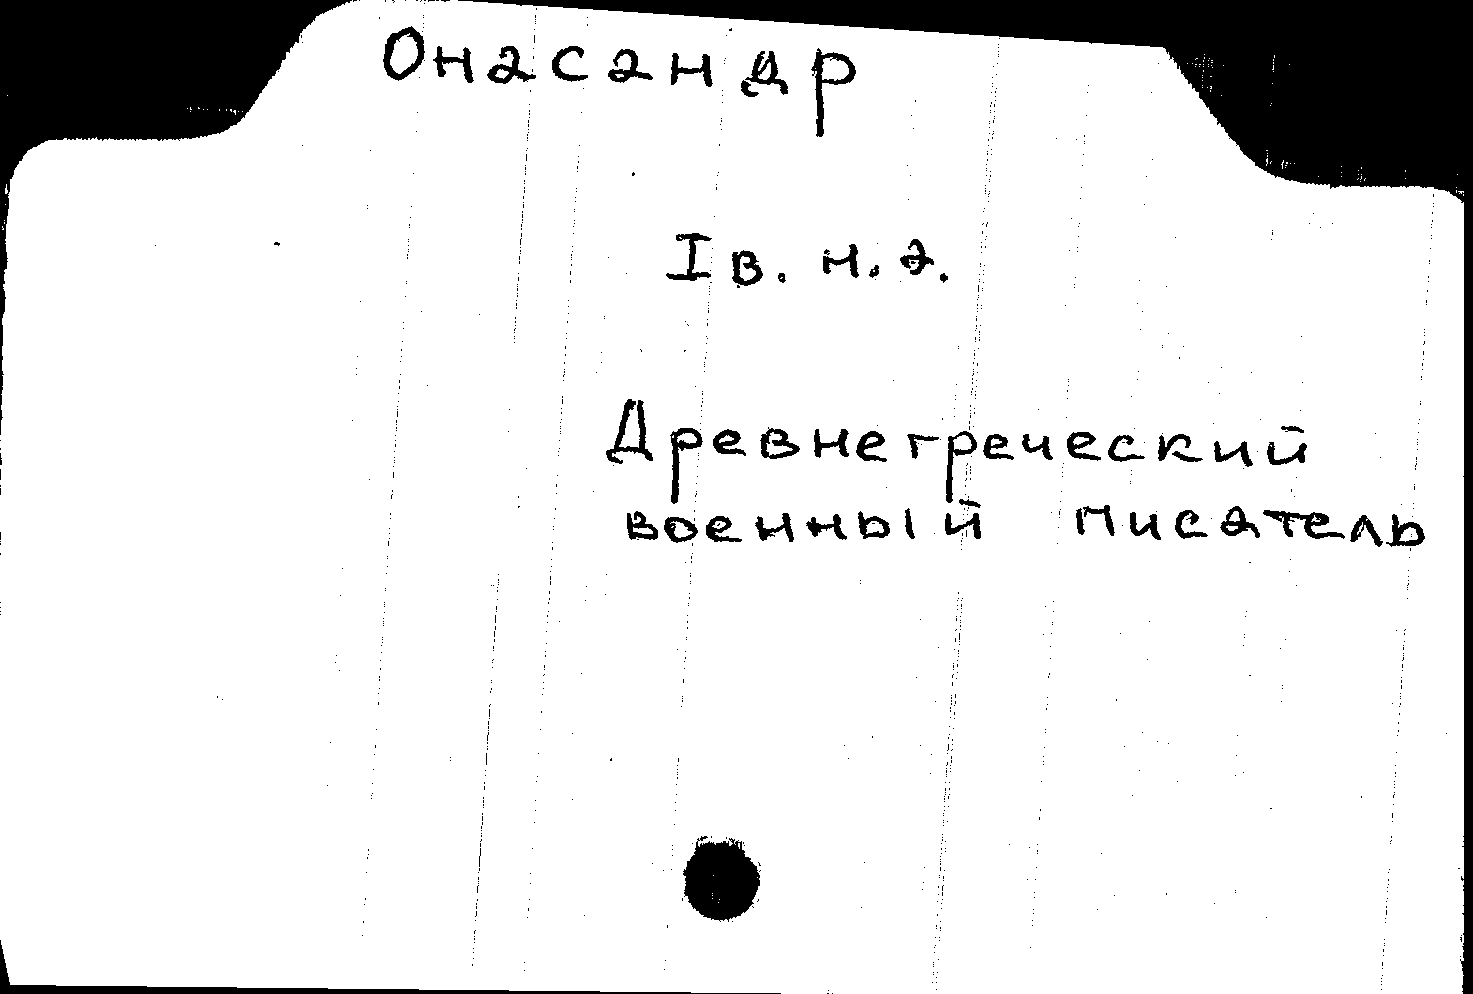 Онасандр
I в. н.э.
Древнегреческий
военный писатель